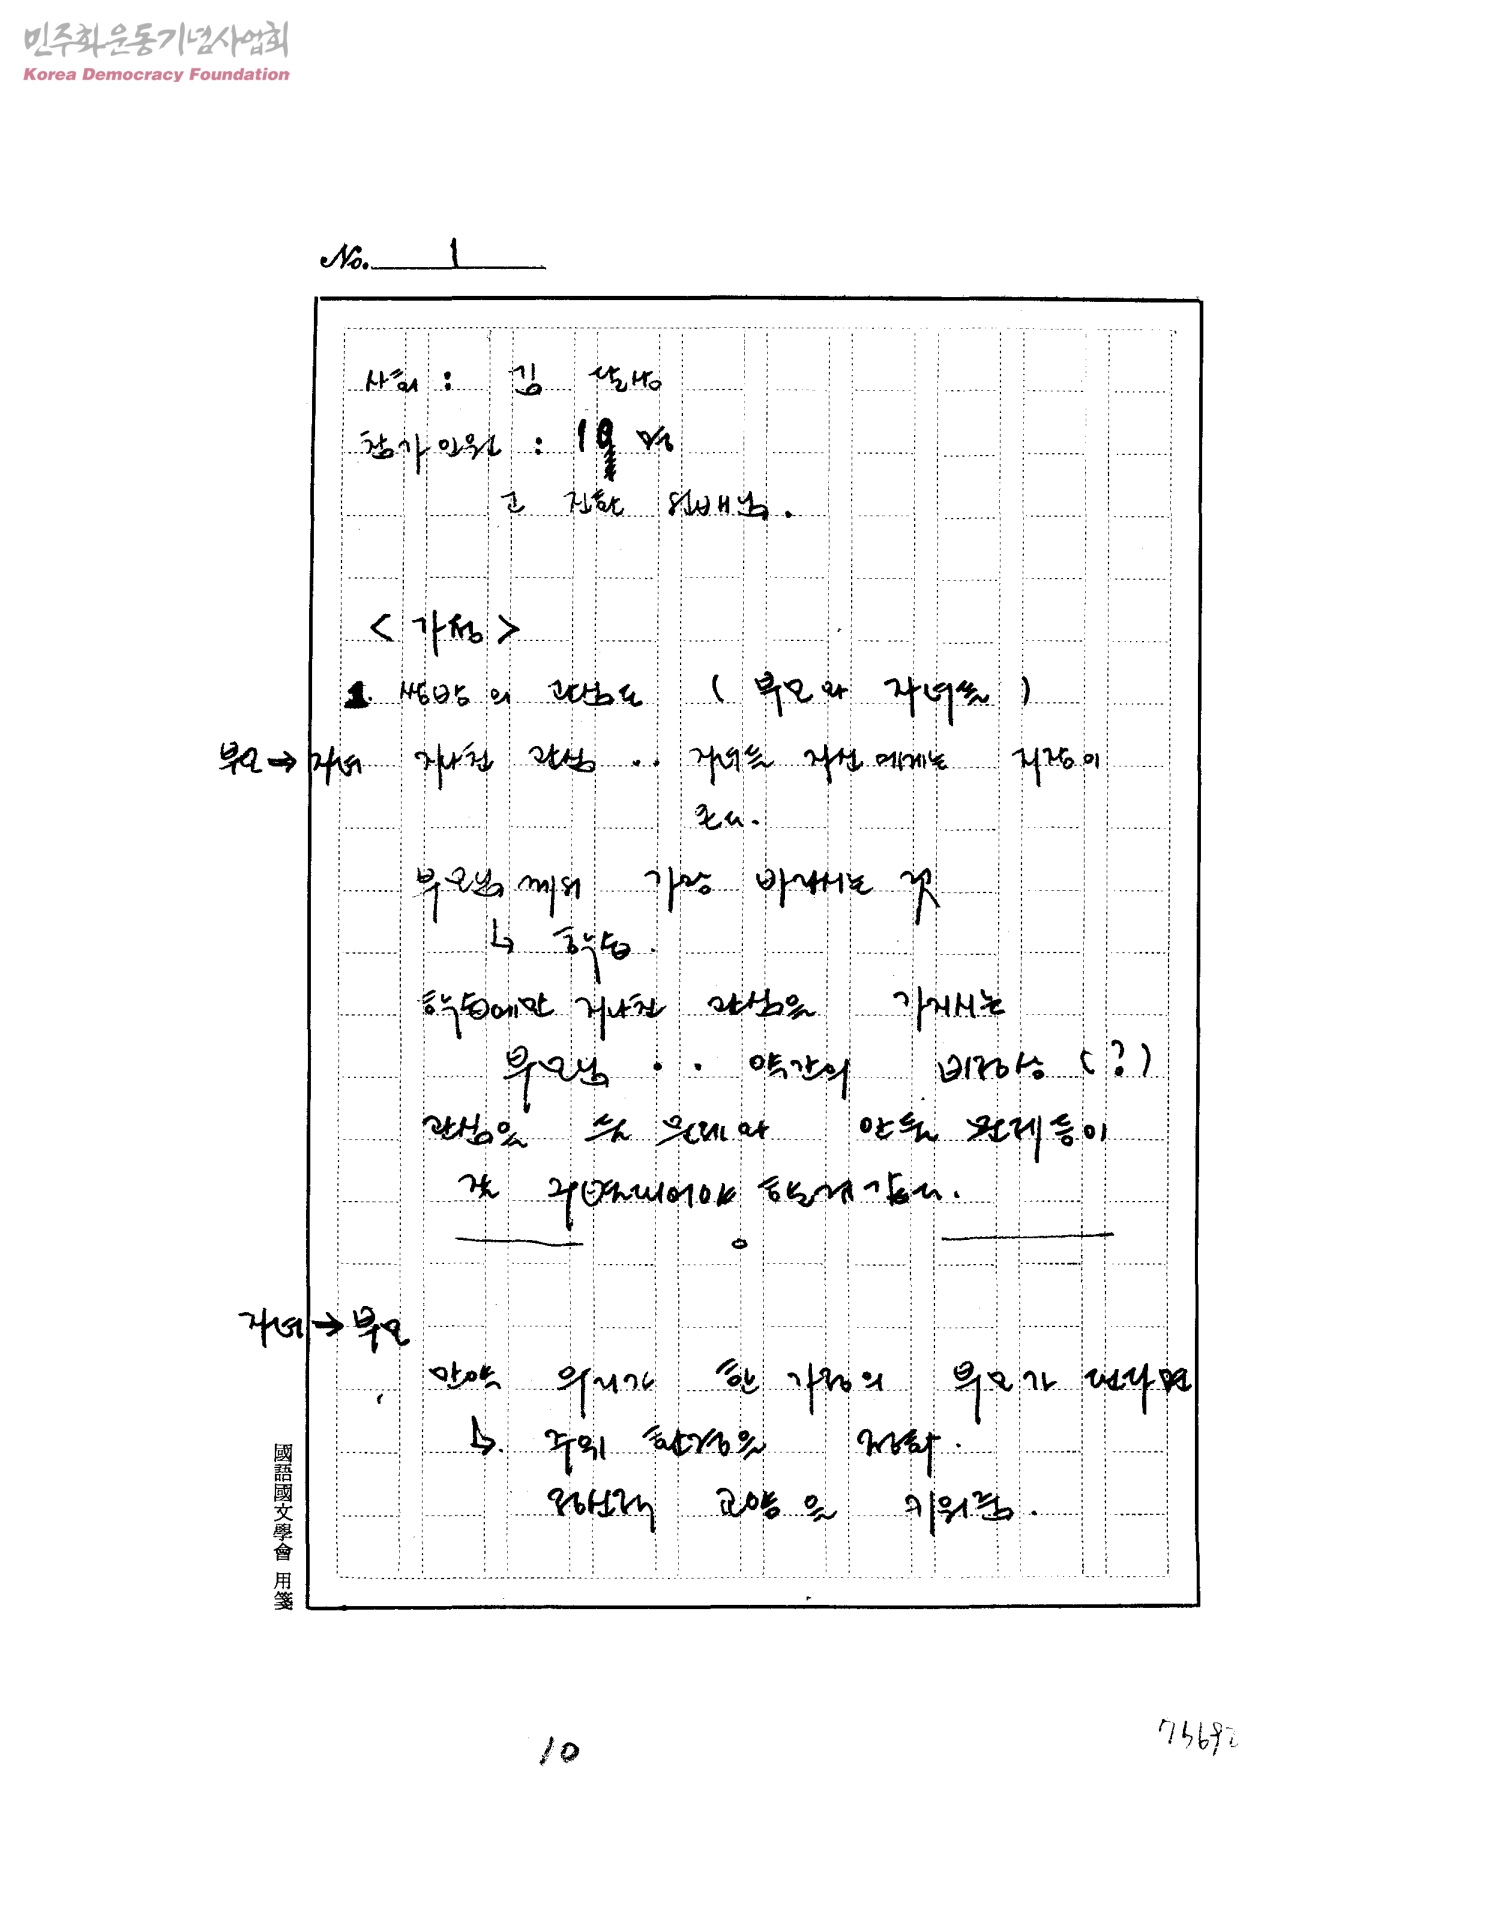 민주화운동기념사업회
Korea Democracy Foundation
No. 1
사회 : 김
참가인원 : 10 명
고 진환 선배님.
< 가정 >
1. 쌍방의 관심도 ( 부모와 자녀들 )
부모 → 자녀 지나친 관심 .. 자녀들 자신에게는 지장이
크다.
부모님께서 가장 바라시는 것
↳ 학습.
에만 지나친 관심을 가지시는
부모님 .. 약간의 비정상 (?)
관심을 둘 문제와 안둘 문제들이
할것 같다.
자녀 → 부모
만약 우리가 한 가정의 부모가 된다면
↳. 주위 환경을 정화.
교양을 키워줌.
國語國文學會 用箋
10
73692